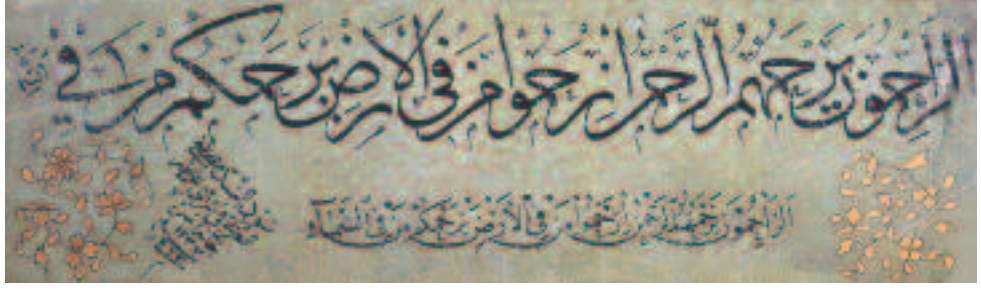 الراحمون يرحمهم الرحمن ارحموا من في الارض يرحمكم من في
الراحمون يرحمهم الرحمن ارحموا من في الارض يرحمكم من في السماء